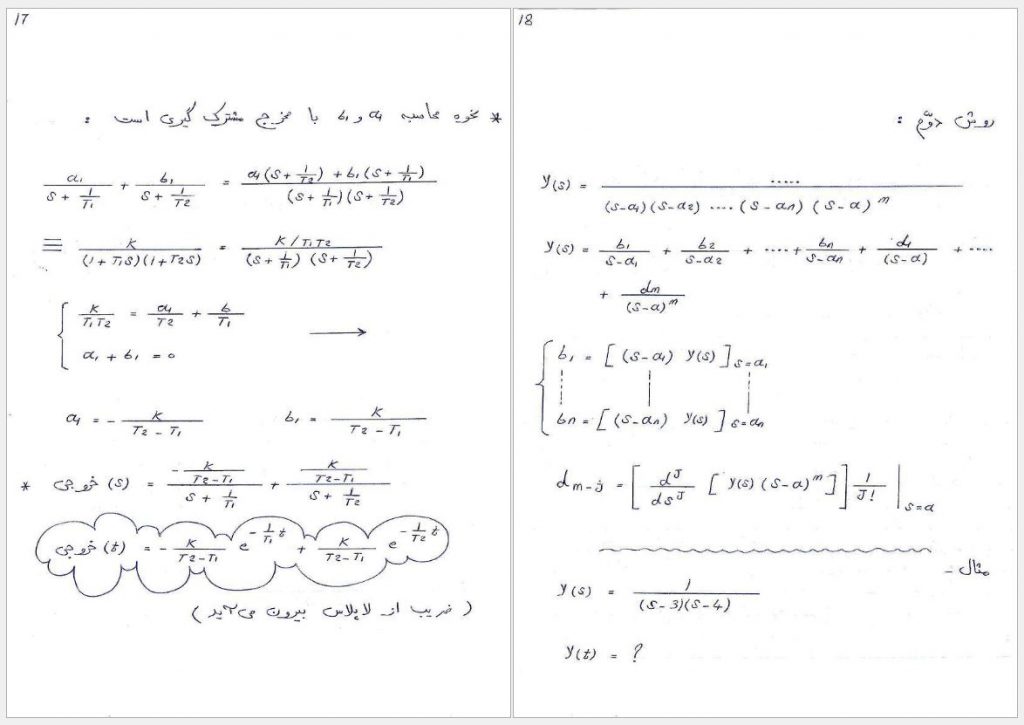 17
* نحوه محاسبه a₁ و b₁ با مخرج مشترک گیری است :
a₁/(S + 1/T₁) + b₁/(S + 1/T2) = (a₁(S + 1/T2) + b₁(S + 1/T₁))/((S + 1/T₁)(S + 1/T2))
≡ K/((1+T₁S)(1+T2S)) = (K/T₁T2)/((S + 1/T₁)(S + 1/T2))
{ K/(T₁T2) = a₁/T2 + b/T₁ ⟶
a₁ + b₁ = 0
a₁ = - K/(T2 - T₁) b₁ = K/(T2 - T₁)
* خروجی (s) = (-K/(T2-T₁))/(S + 1/T₁) + (K/(T2-T₁))/(S + 1/T2)
خروجی (t) = - K/(T2-T₁) e^(-1/T₁ t) + K/(T2-T₁) e^(-1/T2 t)
( ضریب از لاپلاس بیرون می آید )
18
روش دوّم :
Y(s) = ...../((S-a₁)(S-a2) .... (S-an) (S-a)^m)
Y(s) = b₁/(S-a₁) + b2/(S-a2) + .... + bn/(S-an) + d₁/(S-a) + ....
+ dm/(S-a)^m
{ b₁ = [ (S-a₁) Y(s) ] S=a₁
bn = [ (S-an) Y(s) ] S=an
d m-j = [ d^J/ds^J [ Y(s) (S-a)^m ] ] 1/J! | S=a
مثال -
Y(s) = 1/((S-3)(S-4))
Y(t) = ?